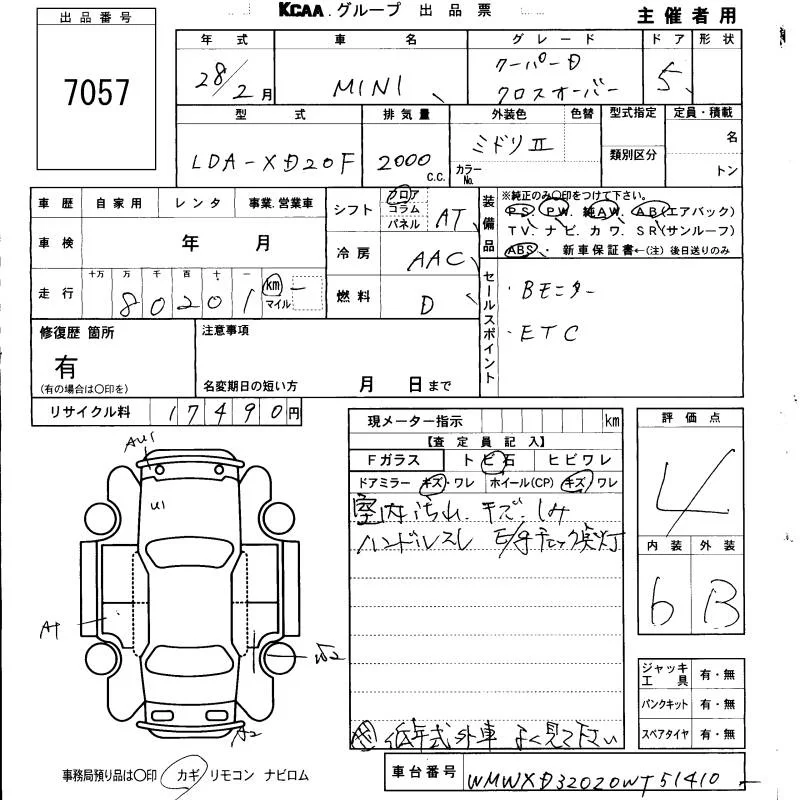 KCAA.グループ 出品票
主催者用
出品番号
7057
年式 車名 グレード ドア 形状
28/2月 MINI クーパーD クロスオーバー 5
型式 排気量 外装色 色替 型式指定 定員・積載
LDA-XD20F 2000 C.C. ミドリII カラーNo. 類別区分 名 トン
車歴 自家用 レンタ 事業.営業車
車検 年 月
走行 十万 万 千 百 十 一
80201 km マイル
シフト フロア コラム パネル AT
冷房 AAC
燃料 D
装備品
※純正のみ〇印をつけて下さい。
PS. PW. 純AW. AB(エアバック)
TV. ナビ. カワ. SR(サンルーフ)
ABS. 新車保証書←(注)後日送りのみ
セールスポイント
・Bモニター
・ETC
修復歴 箇所
有
(有の場合は〇印を)
注意事項
名変期日の短い方 月 日まで
リサイクル料 17490円
現メーター指示 km
【査定員記入】
Fガラス トビ石 ヒビワレ
ドアミラー キズ・ワレ ホイール(CP) キズ/ワレ
室内汚れ.キズ.しみ
ハンドルスレ E/gチェック点灯
低年式外車 よく見て下さい
評価点
4
内装 外装
6 B
ジャッキ 工具 有・無
パンクキット 有・無
スペアタイヤ 有・無
AU1
U1
A1
A2
事務局預り品は〇印 カギ リモコン ナビロム
車台番号 WMWXD32020WT51410